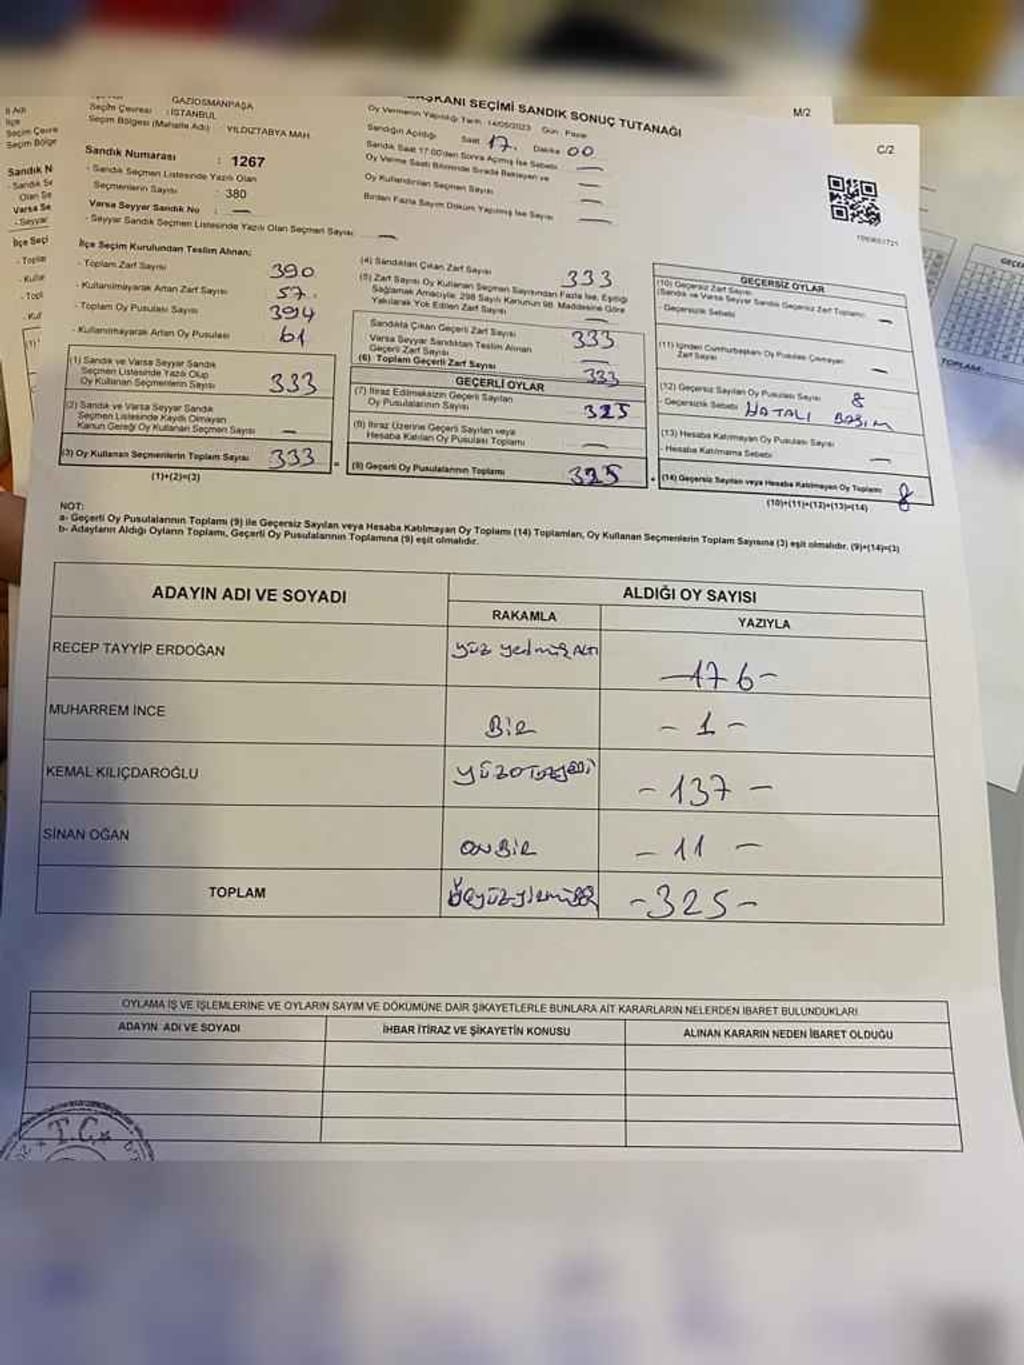 GAZİOSMANPAŞA
Seçim Çevresi : İSTANBUL
Seçim Bölgesi (Mahalle Adı) YILDIZTABYA MAH
Sandık Numarası : 1267
- Sandık Seçmen Listesinde Yazılı Olan
Seçmenlerin Sayısı : 380
Varsa Seyyar Sandık No : —
- Seyyar Sandık Seçmen Listesinde Yazılı Olan Seçmen Sayısı —
BAŞKANI SEÇİMİ SANDIK SONUÇ TUTANAĞI
M/2
C/2
Oy Vermenin Yapıldığı Tarih : 14/05/2023 Gün : Pazar
Sandığın Açıldığı Saat 17. Dakika 00
Sandık Saat 17:00'den Sonra Açılmış İse Sebebi —
Oy Verme Saati Bitiminde Sırada Bekleyen ve
Oy Kullandırılan Seçmen Sayısı —
Birden Fazla Sayım Döküm Yapılmış İse Sayısı —
İlçe Seçim Kurulundan Teslim Alınan;
- Toplam Zarf Sayısı 390
- Kullanılmayarak Artan Zarf Sayısı 57.
- Toplam Oy Pusulası Sayısı 394
- Kullanılmayarak Artan Oy Pusulası 61
(1) Sandık ve Varsa Seyyar Sandık
Seçmen Listesinde Yazılı Olup
Oy Kullanan Seçmenlerin Sayısı 333
(2) Sandık ve Varsa Seyyar Sandık
Seçmen Listesinde Kayıtlı Olmayan
Kanun Gereği Oy Kullanan Seçmen Sayısı —
(3) Oy Kullanan Seçmenlerin Toplam Sayısı 333
(1)+(2)=(3)
(4) Sandıktan Çıkan Zarf Sayısı 333
(5) Zarf Sayısı Oy Kullanan Seçmen Sayısından Fazla İse, Eşitliği
Sağlamak Amacıyla; 298 Sayılı Kanunun 98. Maddesine Göre
Yakılarak Yok Edilen Zarf Sayısı —
Sandıkta Çıkan Geçerli Zarf Sayısı 333
Varsa Seyyar Sandıktan Teslim Alınan
Geçerli Zarf Sayısı —
(6) Toplam Geçerli Zarf Sayısı 333
GEÇERLİ OYLAR
(7) İtiraz Edilmeksizin Geçerli Sayılan
Oy Pusulalarının Sayısı 325
(8) İtiraz Üzerine Geçerli Sayılan veya
Hesaba Katılan Oy Pusulası Toplamı —
(9) Geçerli Oy Pusulalarının Toplamı 325
GEÇERSİZ OYLAR
(10) Geçersiz Zarf Sayısı
(Sandık ve Varsa Seyyar Sandık Geçersiz Zarf Toplamı) —
- Geçersizlik Sebebi
(11) İçinden Cumhurbaşkanı Oy Pusulası Çıkmayan
Zarf Sayısı —
(12) Geçersiz Sayılan Oy Pusulası Sayısı 8
- Geçersizlik Sebebi HATALI BASIM
(13) Hesaba Katılmayan Oy Pusulası Sayısı
- Hesaba Katılmama Sebebi —
(14) Geçersiz Sayılan veya Hesaba Katılmayan Oy Toplamı 8
(10)+(11)+(12)+(13)=(14)
NOT:
a- Geçerli Oy Pusulalarının Toplamı (9) ile Geçersiz Sayılan veya Hesaba Katılmayan Oy Toplamı (14) Toplamları, Oy Kullanan Seçmenlerin Toplam Sayısına (3) eşit olmalıdır. (9)+(14)=(3)
b- Adayların Aldığı Oyların Toplamı, Geçerli Oy Pusulalarının Toplamına (9) eşit olmalıdır.
ADAYIN ADI VE SOYADI ALDIĞI OY SAYISI
RAKAMLA YAZIYLA
RECEP TAYYİP ERDOĞAN yüz yetmiş ALTI —176-
MUHARREM İNCE BİR - 1 -
KEMAL KILIÇDAROĞLU YÜZOTUZYEDİ - 137 -
SİNAN OĞAN ONBİR - 11 -
TOPLAM -325-
OYLAMA İŞ VE İŞLEMLERİNE VE OYLARIN SAYIM VE DÖKÜMÜNE DAİR ŞİKAYETLERLE BUNLARA AİT KARARLARIN NELERDEN İBARET BULUNDUKLARI
ADAYIN ADI VE SOYADI İHBAR İTİRAZ VE ŞİKAYETİN KONUSU ALINAN KARARIN NEDEN İBARET OLDUĞU
T.C.